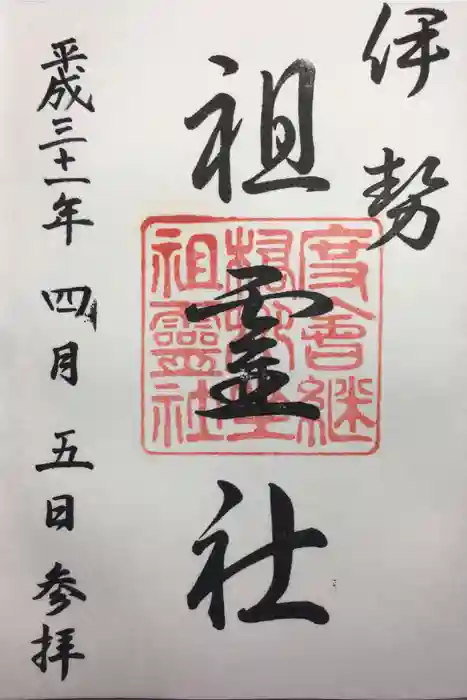 伊勢
祖靈社
度會継
祖靈社
平成三十一年 四月 五日 参拝